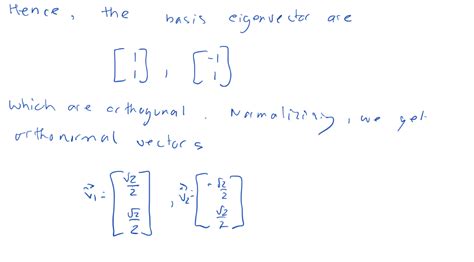 Hence, the basis eigenvector are
[1 1], [-1 1]
which are orthogonal. Normalizing, we get
orthonormal vectors
v⃗₁ = [√2/2 √2/2], v⃗₂ = [-√2/2 √2/2]